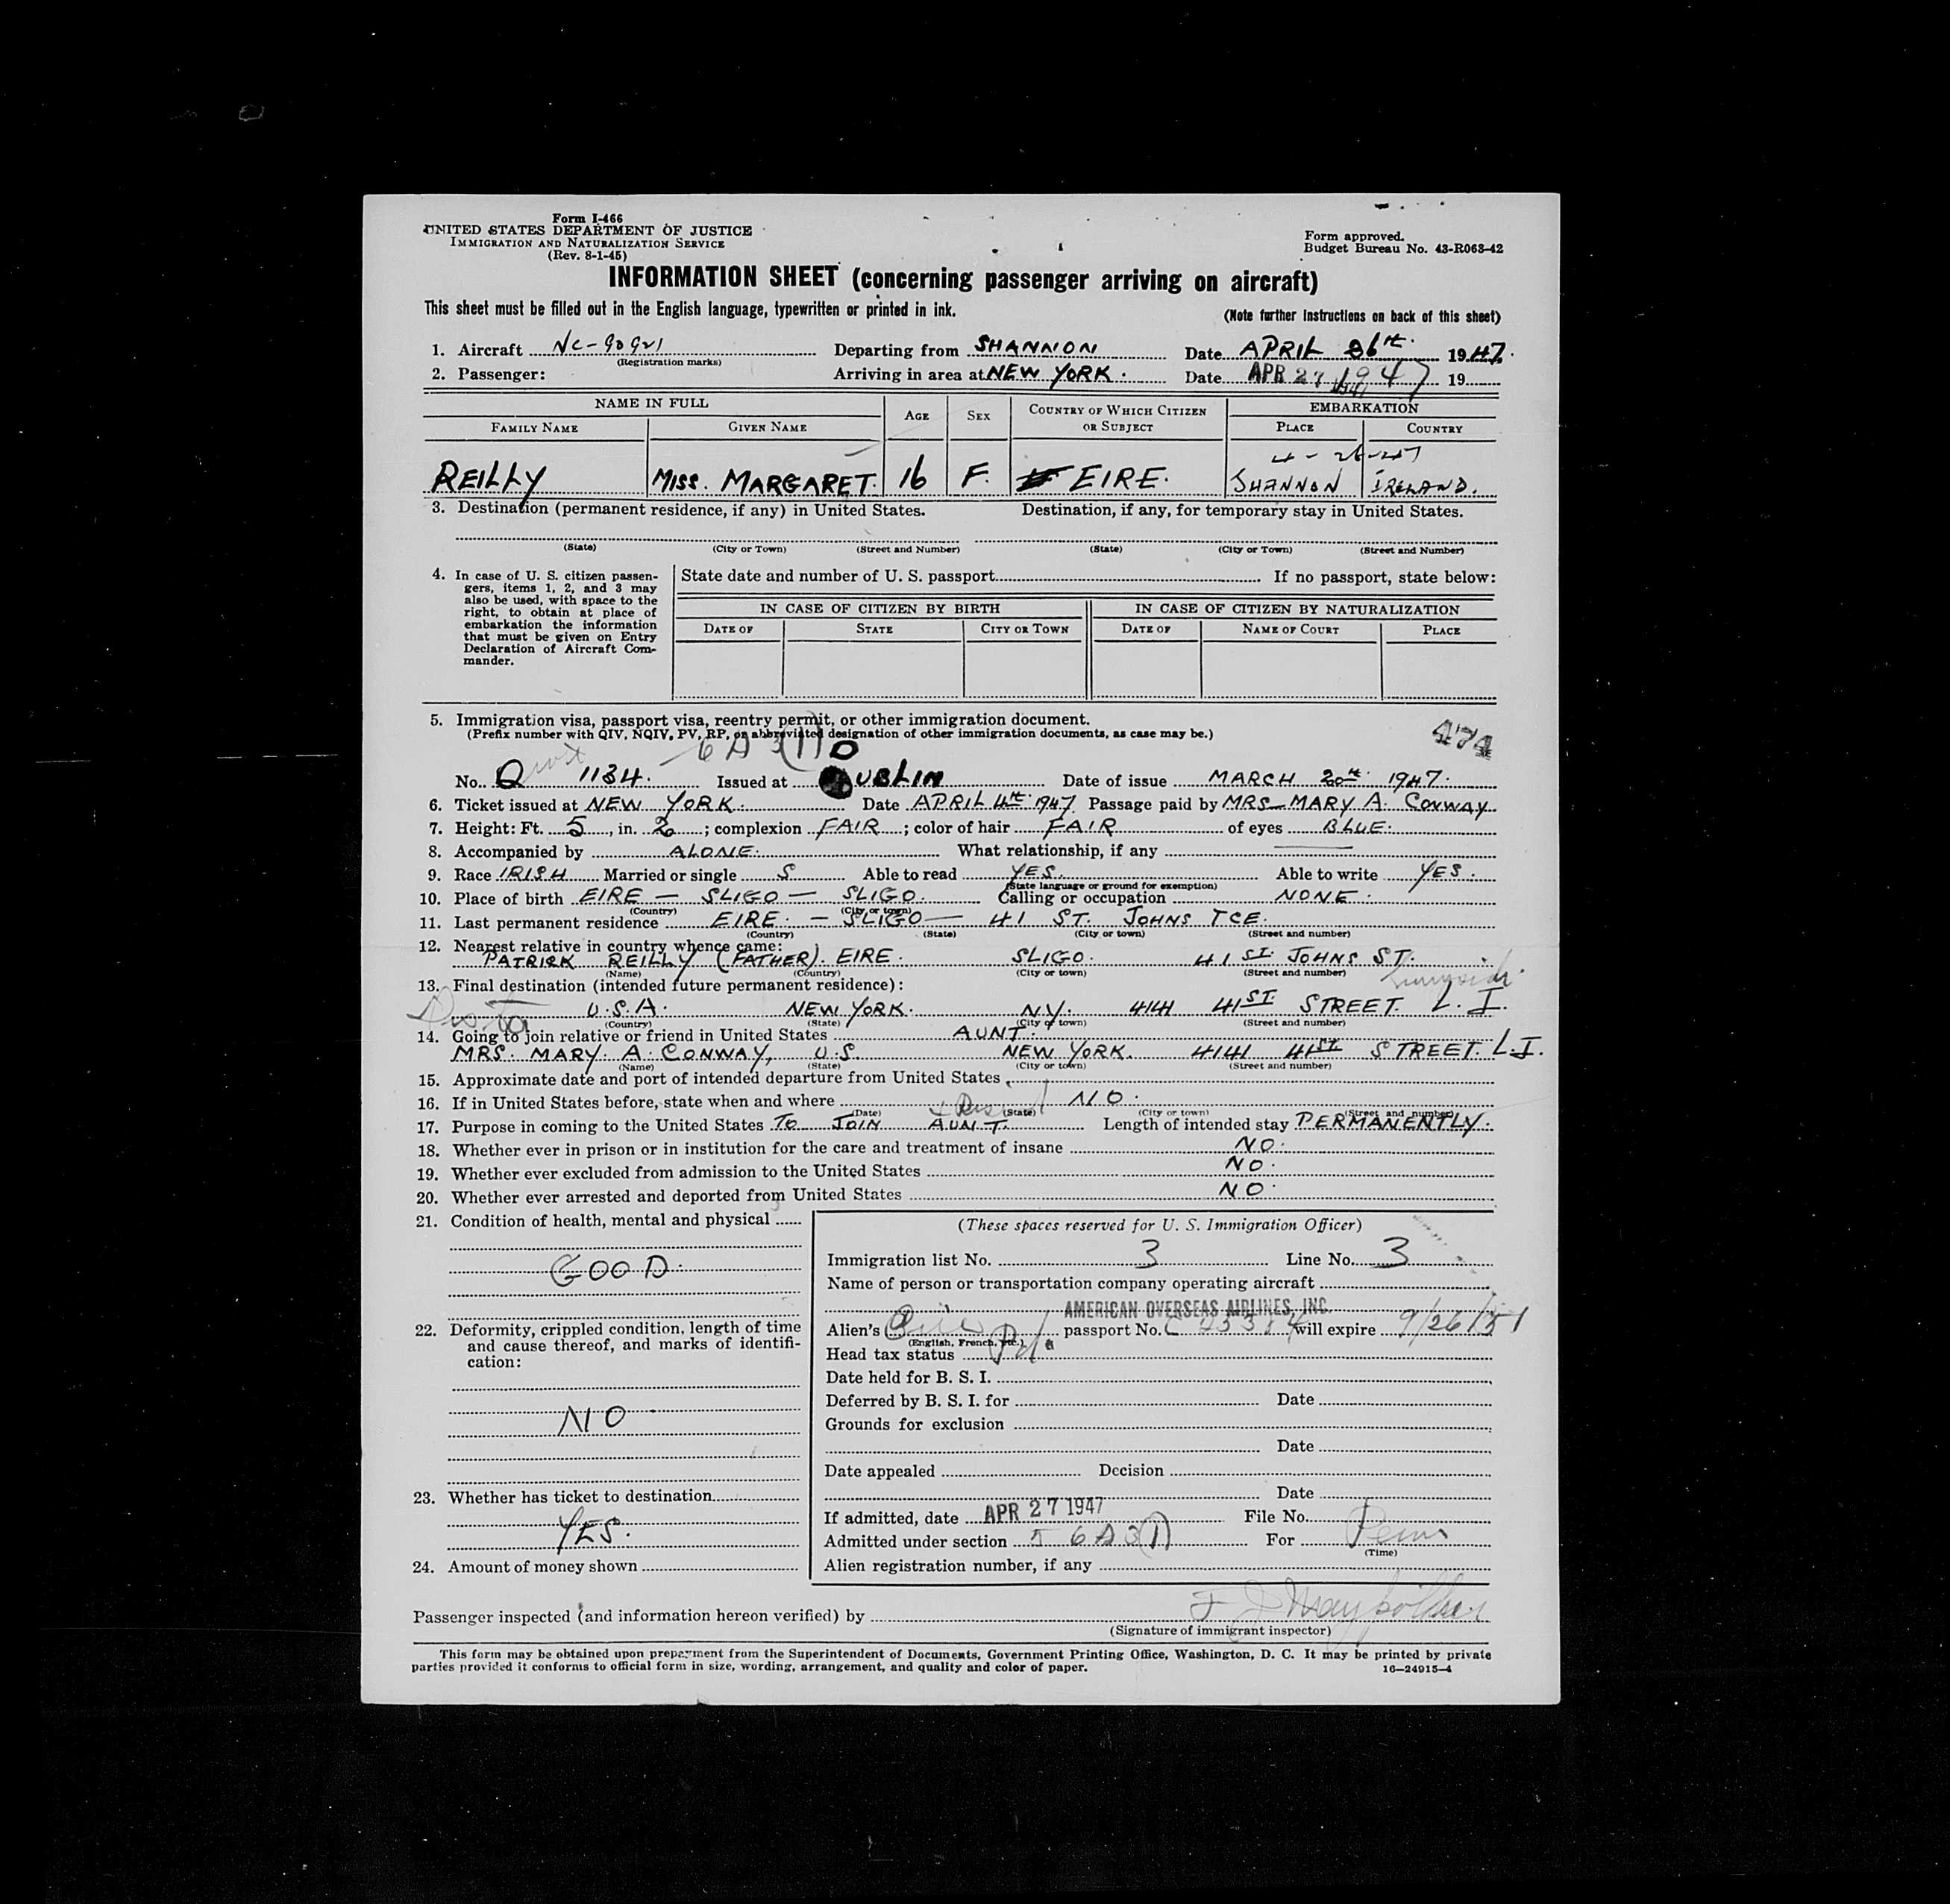 Form I-466
UNITED STATES DEPARTMENT OF JUSTICE
IMMIGRATION AND NATURALIZATION SERVICE
(Rev. 8-1-45)
Form approved.
Budget Bureau No. 43-R063-42
INFORMATION SHEET (concerning passenger arriving on aircraft)
This sheet must be filled out in the English language, typewritten or printed in ink.
(Note further instructions on back of this sheet)
1. Aircraft NC-90921 Departing from SHANNON Date APRIL 26th 1947.
(Registration marks)
2. Passenger: Arriving in area at NEW YORK. Date APR 27 1947 19
NAME IN FULL AGE SEX COUNTRY OF WHICH CITIZEN OR SUBJECT EMBARKATION
FAMILY NAME GIVEN NAME PLACE COUNTRY
4-26-47
REILLY MISS. MARGARET. 16 F. EIRE. SHANNON IRELAND.
3. Destination (permanent residence, if any) in United States. Destination, if any, for temporary stay in United States.
(State) (City or Town) (Street and Number) (State) (City or Town) (Street and Number)
4. In case of U. S. citizen passengers, items 1, 2, and 3 may also be used, with space to the right, to obtain at place of embarkation the information that must be given on Entry Declaration of Aircraft Commander.
State date and number of U. S. passport If no passport, state below:
IN CASE OF CITIZEN BY BIRTH IN CASE OF CITIZEN BY NATURALIZATION
DATE OF STATE CITY OR TOWN DATE OF NAME OF COURT PLACE
5. Immigration visa, passport visa, reentry permit, or other immigration document.
(Prefix number with QIV, NQIV, PV, RP, or abbreviated designation of other immigration documents, as case may be.)
474
6A3(1) D
No. Q 1134. Issued at DUBLIN Date of issue MARCH 20th 1947.
6. Ticket issued at NEW YORK. Date APRIL 4th 1947 Passage paid by MRS MARY A. CONWAY
7. Height: Ft. 5, in. 2; complexion FAIR; color of hair FAIR of eyes BLUE.
8. Accompanied by ALONE. What relationship, if any
9. Race IRISH Married or single S Able to read YES. Able to write YES.
(State language or ground for exemption)
10. Place of birth EIRE — SLIGO — SLIGO. Calling or occupation NONE.
(Country) (City or town)
11. Last permanent residence EIRE. — SLIGO — 41 ST. JOHNS TCE.
(Country) (State) (City or town) (Street and number)
12. Nearest relative in country whence came:
PATRICK REILLY (FATHER). EIRE. SLIGO. 41 ST. JOHNS ST.
(Name) (Country) (City or town) (Street and number)
Sunnyside
13. Final destination (intended future permanent residence):
U.S.A. NEW YORK. N.Y. 4141 41ST. STREET. L.I.
(Country) (State) (City or town) (Street and number)
14. Going to join relative or friend in United States AUNT.
MRS. MARY. A. CONWAY, U.S. NEW YORK. 4141 41ST. STREET. L.I.
(Name) (State) (City or town) (Street and number)
15. Approximate date and port of intended departure from United States
16. If in United States before, state when and where NO.
(Date) (State) (City or town) (Street and number)
17. Purpose in coming to the United States TO JOIN AUNT. Length of intended stay PERMANENTLY.
18. Whether ever in prison or in institution for the care and treatment of insane NO.
19. Whether ever excluded from admission to the United States NO.
20. Whether ever arrested and deported from United States NO.
21. Condition of health, mental and physical
GOOD.
22. Deformity, crippled condition, length of time and cause thereof, and marks of identification:
NO
23. Whether has ticket to destination
YES.
24. Amount of money shown
(These spaces reserved for U. S. Immigration Officer)
Immigration list No. 3 Line No. 3
Name of person or transportation company operating aircraft
AMERICAN OVERSEAS AIRLINES, INC.
Alien's passport No. will expire 9/26/51
(English, French, etc.)
Head tax status Pd
Date held for B. S. I.
Deferred by B. S. I. for Date
Grounds for exclusion
Date
Date appealed Decision
Date
If admitted, date APR 27 1947 File No.
Admitted under section 6A3(1) For Perm
(Time)
Alien registration number, if any
Passenger inspected (and information hereon verified) by
(Signature of immigrant inspector)
This form may be obtained upon prepayment from the Superintendent of Documents, Government Printing Office, Washington, D. C. It may be printed by private
parties provided it conforms to official form in size, wording, arrangement, and quality and color of paper. 16—24915-4